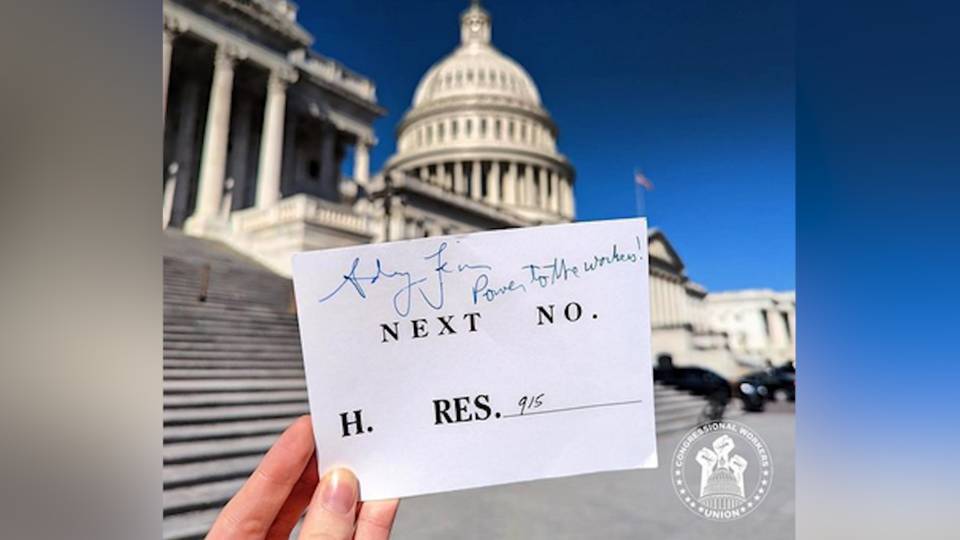 Andy Levin
Power to the workers!
NEXT NO.
H. RES. 915
CONGRESSIONAL WORKERS
UNION